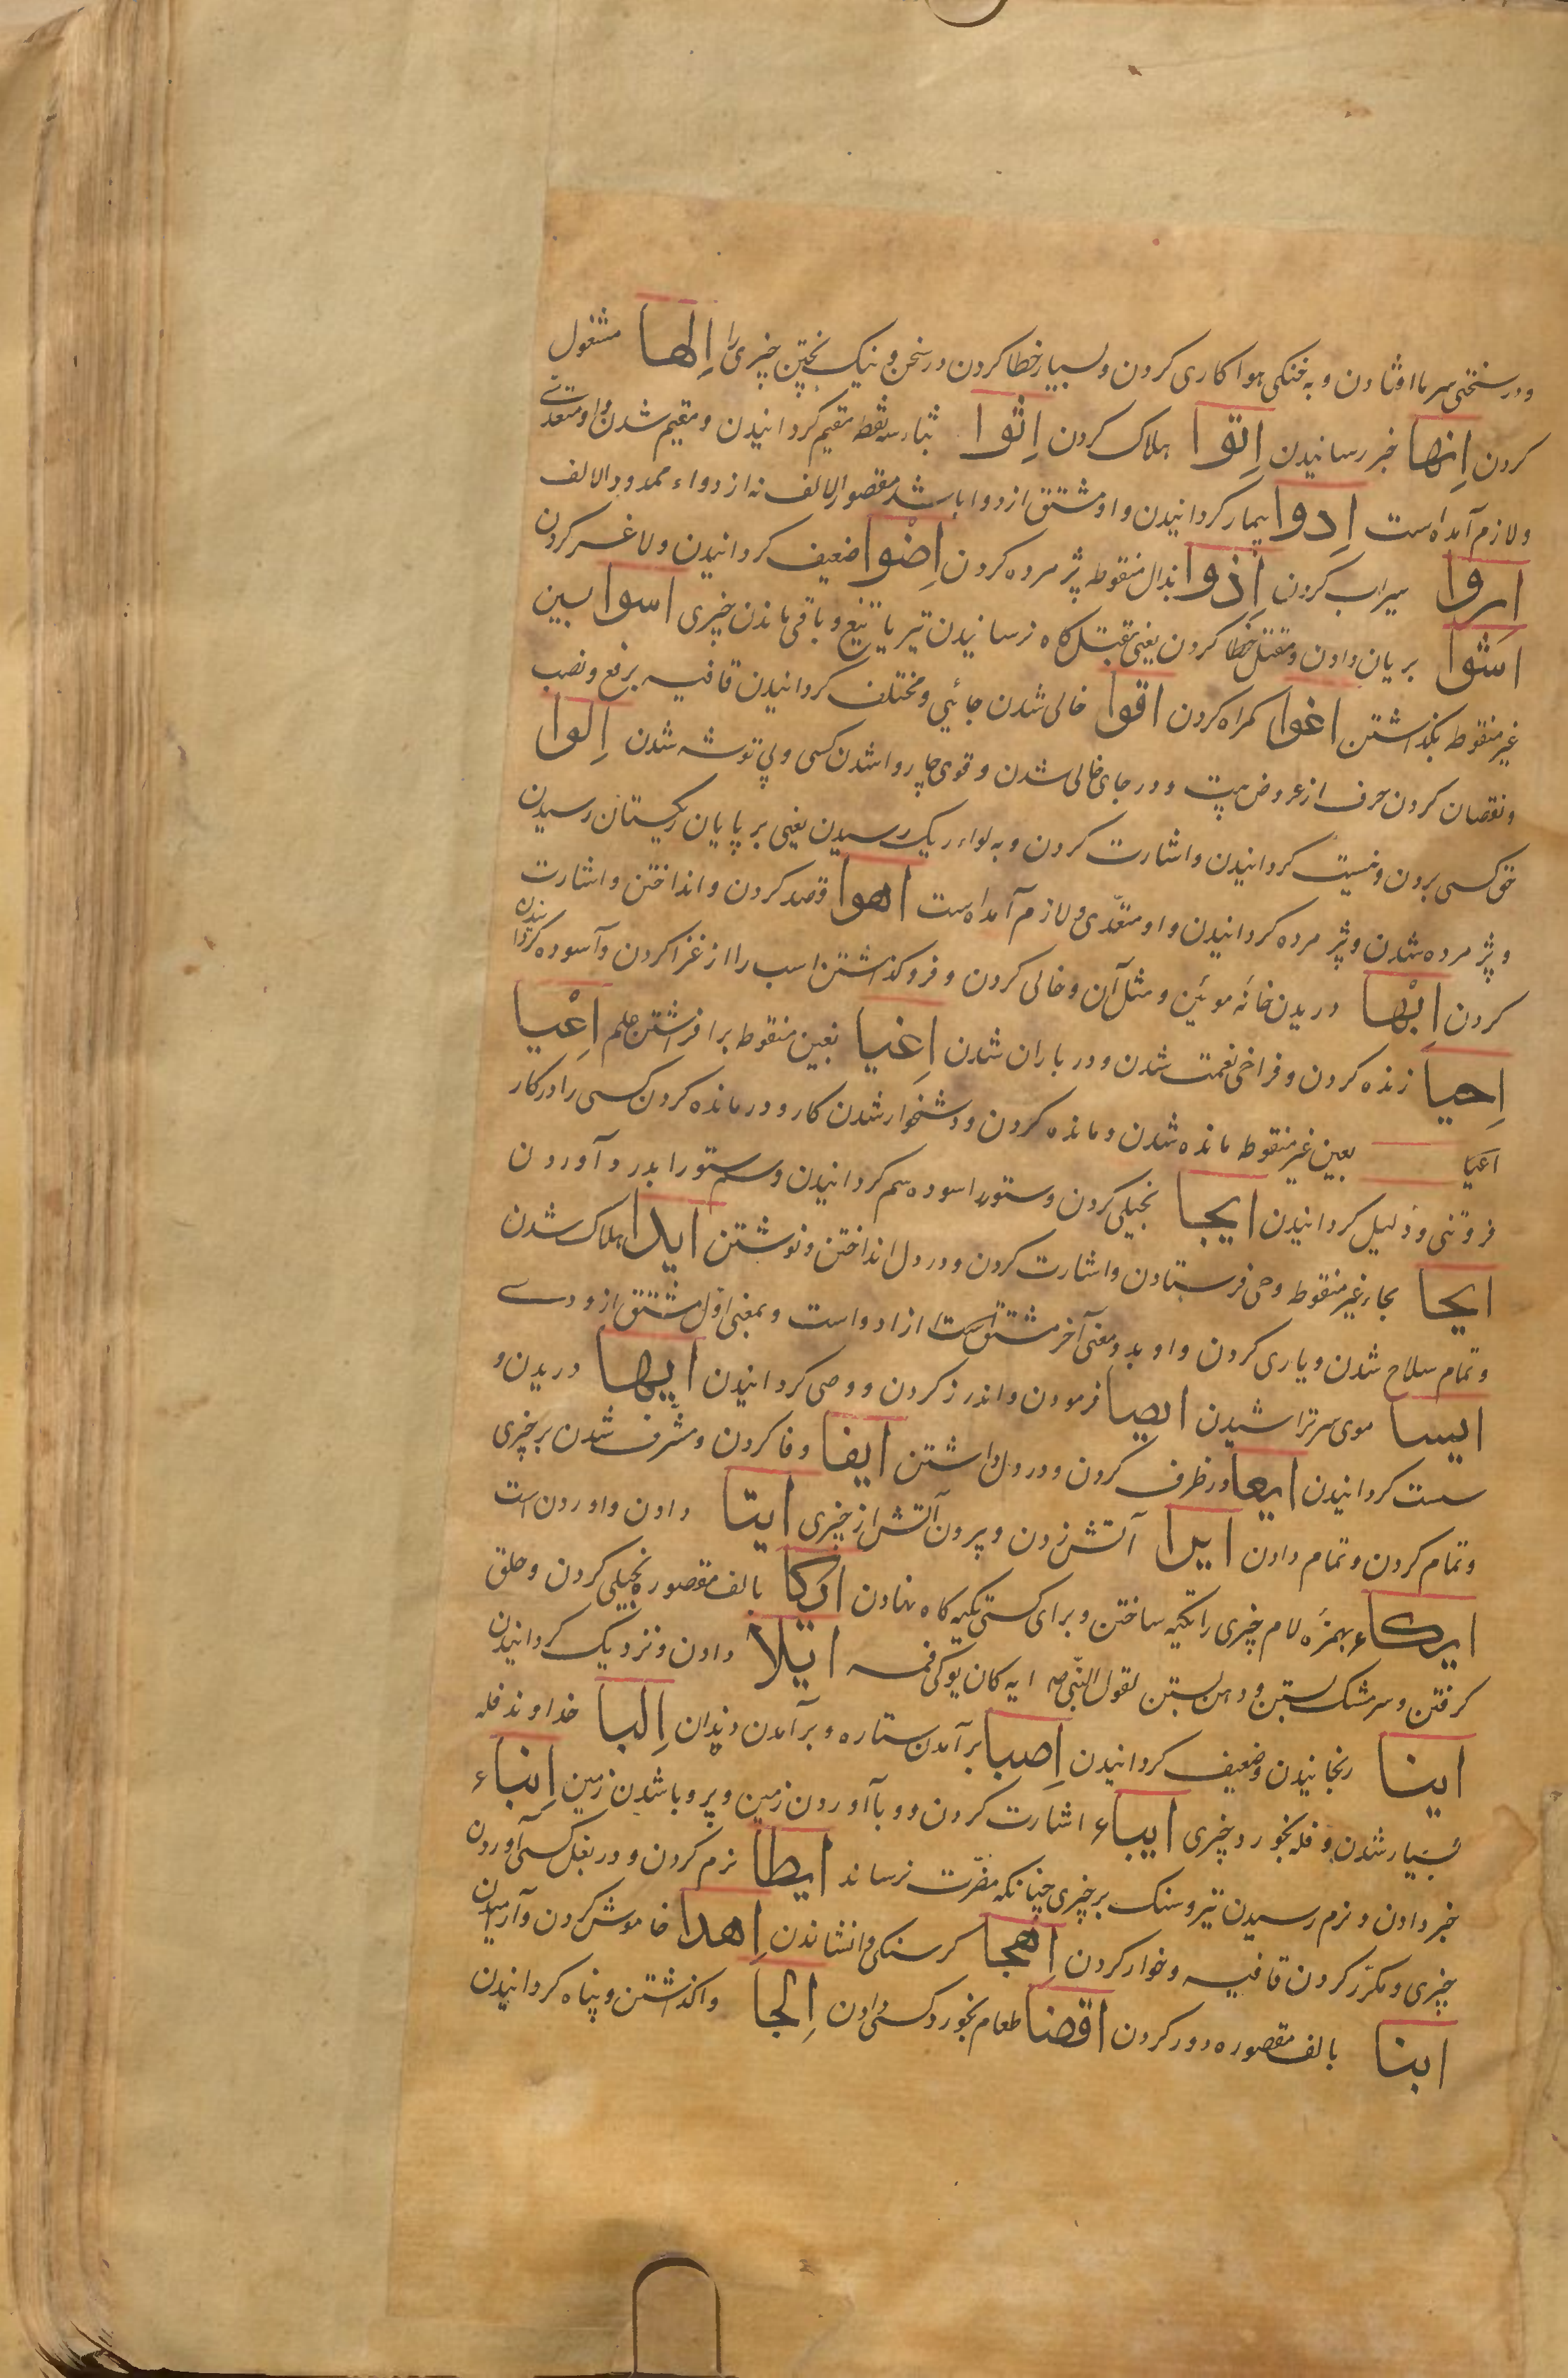 ودر سختی سرما اوفتادن و به خنکی هوا کاری کردن و بسیار خطا کردن در سخن و نیک پختن چیزی را اِلها مشغول
کردن اِنها خبر رسانیدن اِتوا هلاک کردن اِثوا بثاء سه نقطه مقیم کردانیدن و مقیم شدن و او متعدی
ولازم آمده است اِدوا بیمار کردانیدن و او مشتق از دوا باشد مقصور الالف نه از دواء ممدود الالف
اروا سیراب کردن اِذوا بذال منقوطه پژمرده کردن اِضْوا ضعیف کردانیدن و لاغر کردن
اشوا بریان دادن و مقتل خطا کردن یعنی بقتل کاه نرسانیدن تیر یا تیغ و باقی ماندن چیزی اسوا بسین
غیر منقوطه بکذاشتن اغوا کمراه کردن اقوا خالی شدن جائی و مختلف کردانیدن قافیه برفع و نصب
و نقصان کردن حرف از عروض بیت و در جای خالی شدن و قوی چاروا شدن کسی و بی توشه شدن اِلوا
حق کسی بردن و نیست کردانیدن و اشارت کردن و به لواء ریک رسیدن یعنی بر پایان ریکستان رسیدن
و پژمرده شدن و پژمرده کردانیدن و او متعدّی و لازم آمده است اهوا قصد کردن و انداختن و اشارت
کردن اِبْها دریدن خانهٔ موئین و مثل آن و خالی کردن و فرو کذاشتن اسب را از غزا کردن و آسوده کردانیدن
اِحیا زنده کردن و فراخی نعمت شدن و در باران شدن اِغیا بغین منقوطه برافرشتن علم اعْیا
اعیا بعین غیر منقوطه مانده شدن و مانده کردن و دشخوار شدن کار و درمانده کردن کسی را در کار
فروتنی و ذلیل کردانیدن ایجا بخیلی کردن و ستور را سوده سم کردانیدن و سم ستور را بدرد آوردن
ایحا بحاء غیر منقوطه وحی فرستادن و اشارت کردن و در دل انداختن و نوشتن ایدا هلاک شدن
و تمام سلاح شدن و یاری کردن و او بدو معنی آخر مشتق است از ادواست و بمعنی اوّل مشتق از ودی
ایسا موی سر تراشیدن ایصا فرمودن و اندرز کردن و وصی کردانیدن ایها دریدن و
سست کردانیدن ایعا در ظرف کردن و در دل داشتن ایفا وفا کردن و مشرف شدن بر چیزی
و تمام کردن و تمام دادن ایرا آتش زدن و بیرون آتش از چیزی ایتا دادن و اوردن است
ایکاء بهمزهٔ لام چیزی را تکیه ساختن و برای کسی تکیه کاه نهادن ایکا بالف مقصوره بخیلی کردن و حلق
کرفتن و سر مشک بستن و دهن بستن لقول النّبی صم انه کان یوکی فمه ایلا دادن و نزدیک کردانیدن
اینا رنجانیدن و ضعیف کردانیدن اِصبا برآمدن ستاره و برآمدن دندان اِلبا خداوند فله
بسیار شدن و فله بخورد چیزی ایباء اشارت کردن و وبا آوردن زمین و پر وبا شدن زمین اِنباء
خبر دادن و نرم رسیدن تیر و سنک بر چیزی چنانکه مضرّت نرساند ایطا نرم کردن و در بغل کسی آوردن
چیزی و مکرّر کردن قافیه و خوار کردن اِهجا کرسنکی وانشاندن اِهدا خاموش کردن و آرامیدن
ابنا بالف مقصوره دور کردن اقضا طعام بخورد کسی دادن اِلجا واکذاشتن و پناه کردانیدن